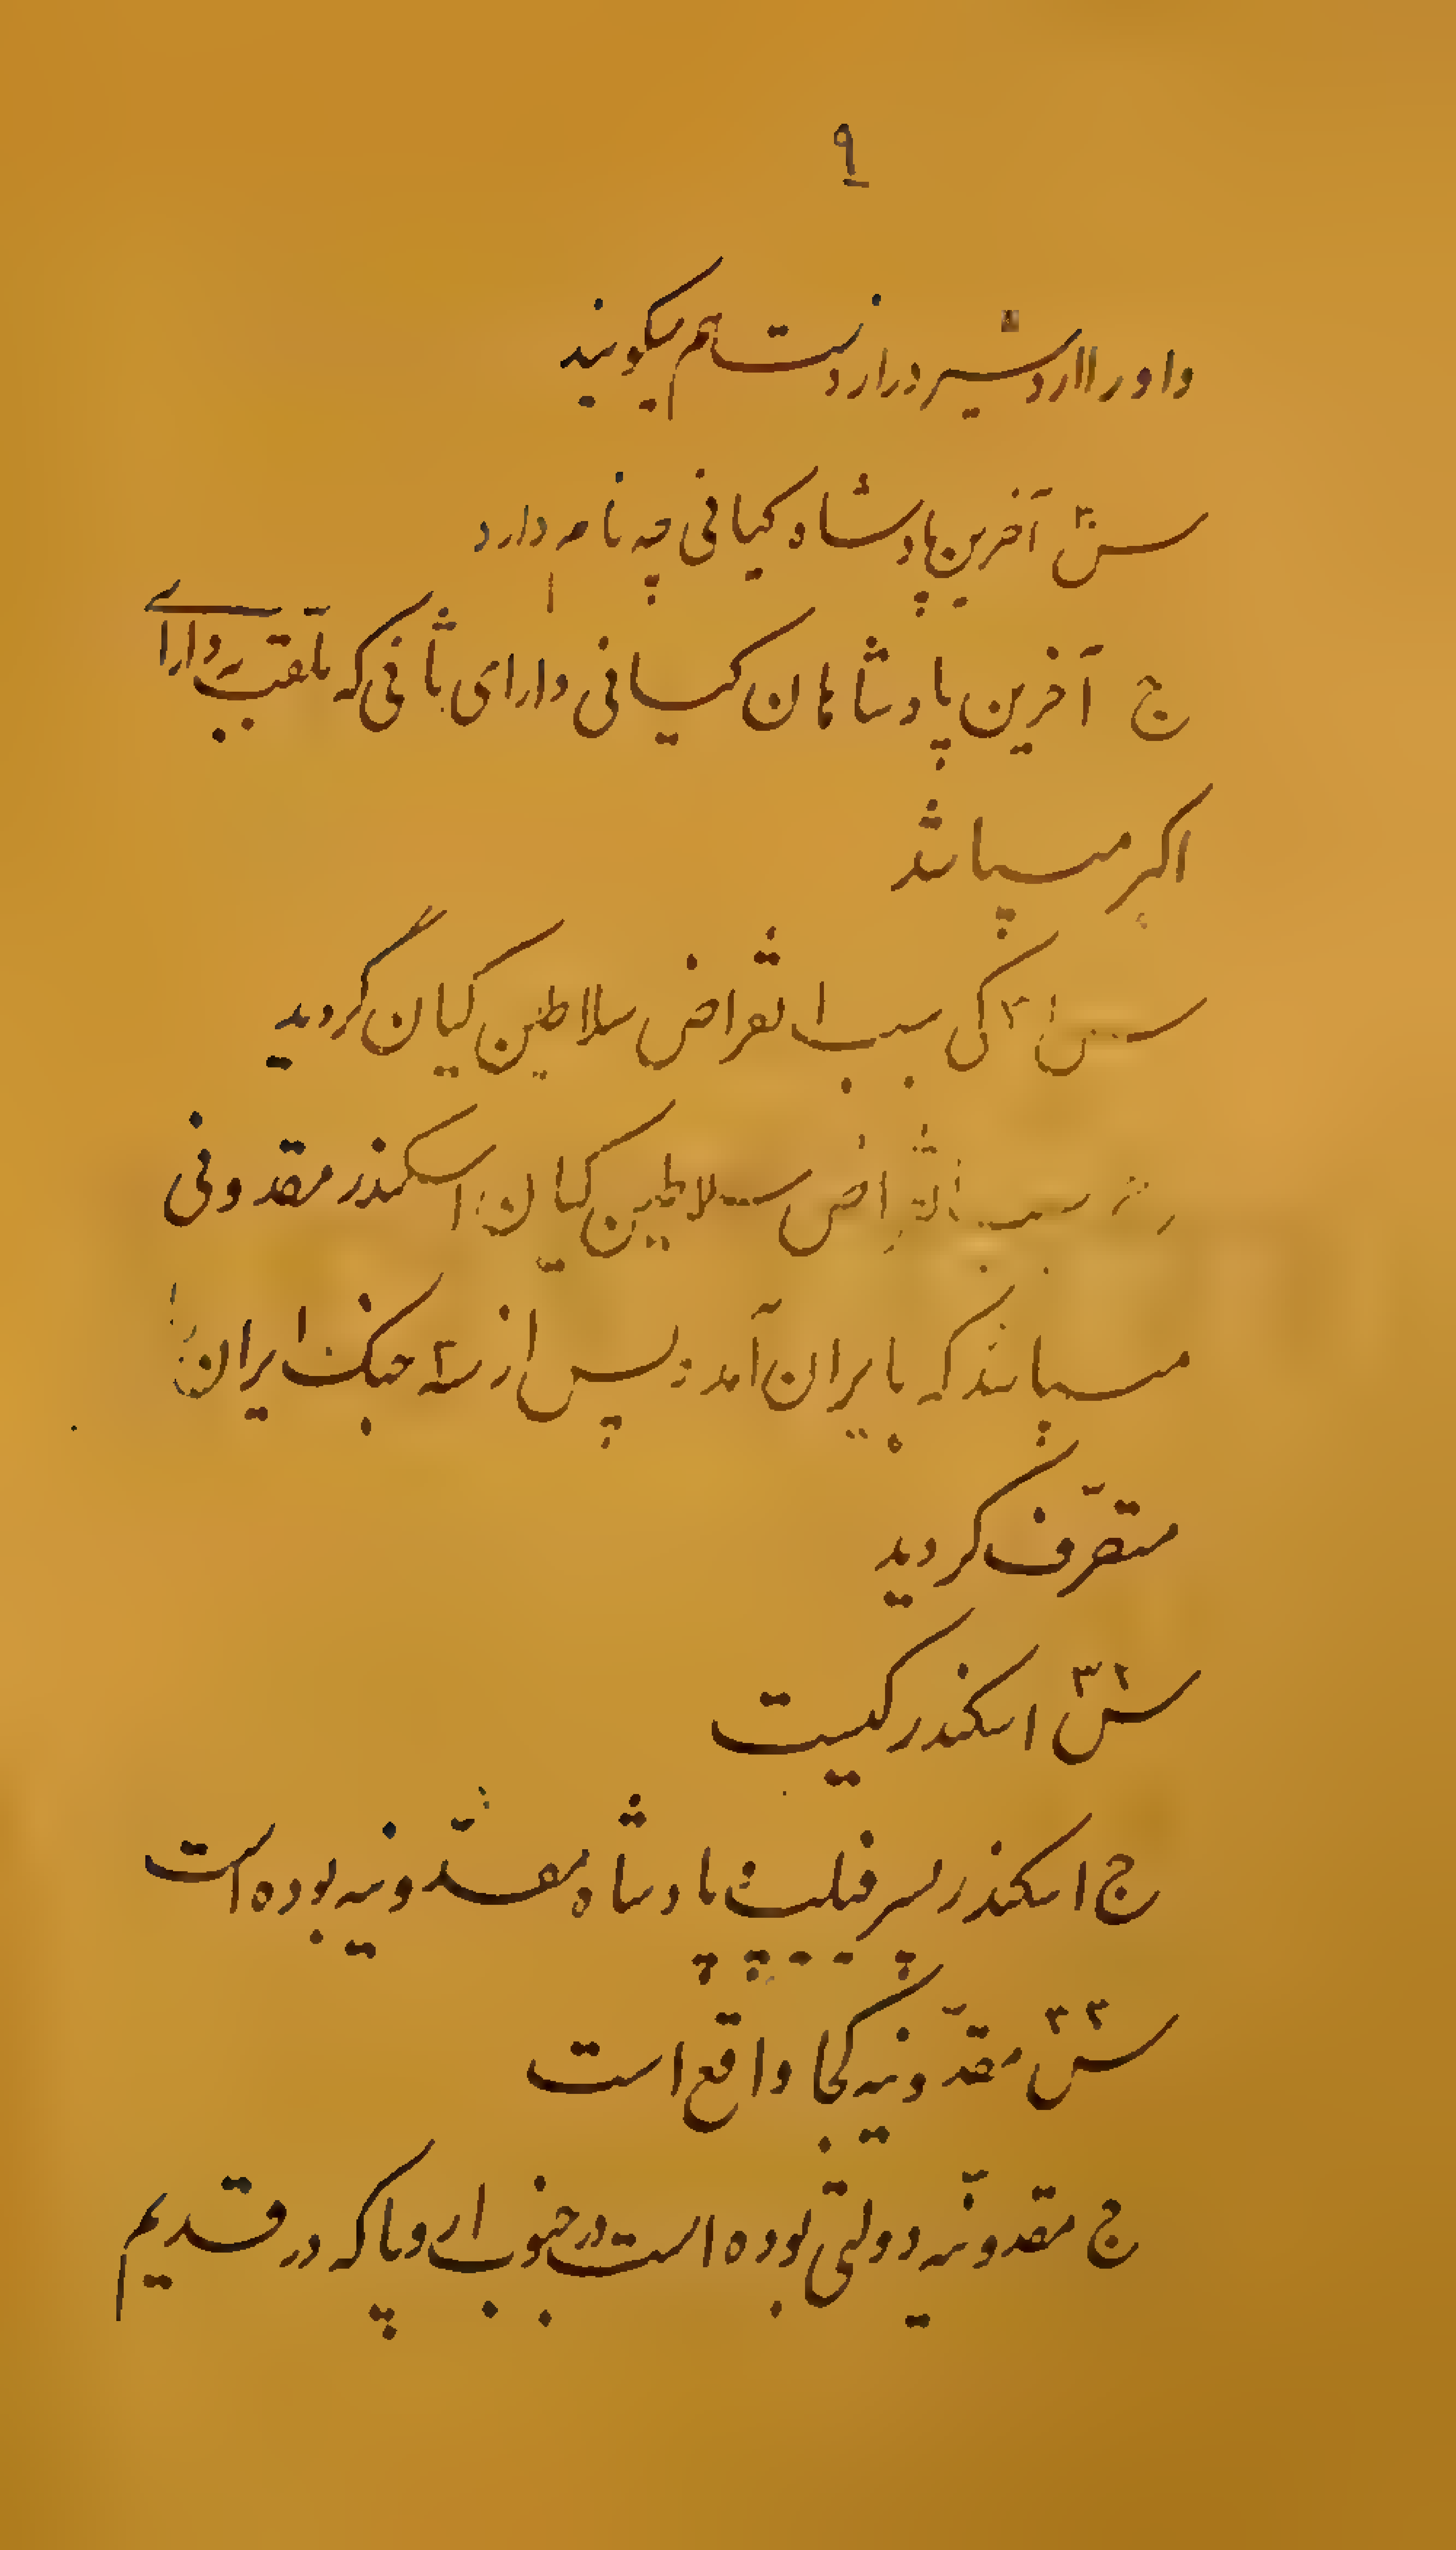 ۹
و او را اردشیر دراز دست هم میگویند
س۳۰ آخرین پادشاه کیانی چه نام دارد
ج آخرین پادشاهان کیانی دارای ثانی که ملقب به دارای
اکبر میباشد
س۳۱ کی سبب انقراض سلاطین کیان گردید
ج سبب انقراض سلاطین کیان اسکندر مقدونی
میباشد که بایران آمد و پس از سه جنگ ایران را
متصرّف گردید
س۳۲ اسکندر کیست
ج اسکندر پسر فیلیپ پادشاه مقدّونیه بوده است
س۳۳ مقدّونیه کجا واقع است
ج مقدونیّه دولتی بوده است در جنوب اروپا که در قدیم